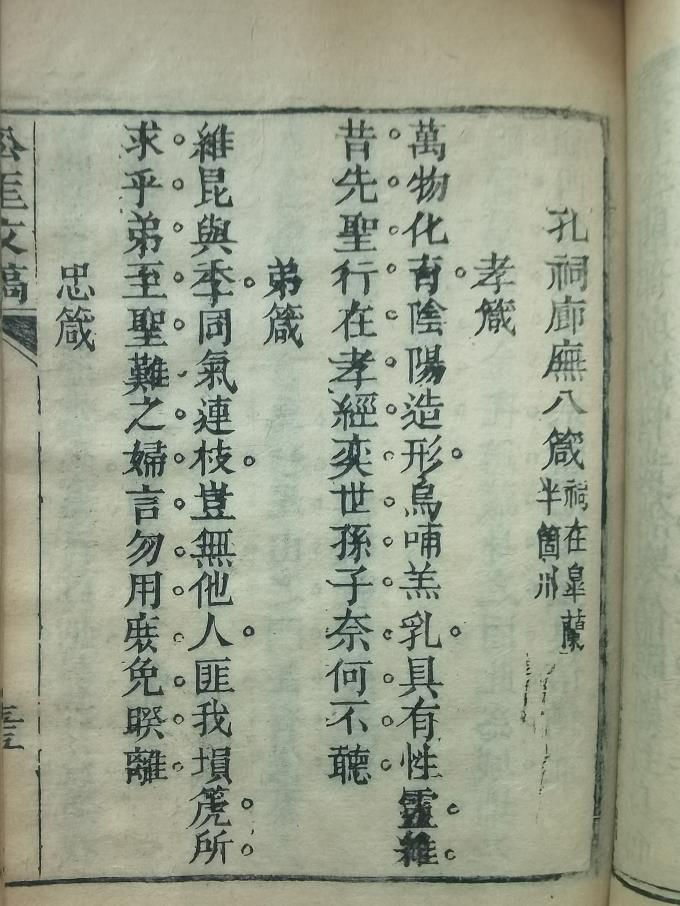 孔祠廊廡八箴祠在臯蘭半箇川
孝箴
萬物化育陰陽造形烏哺羔乳具有性靈維
昔先聖行在孝經奕世孫子奈何不聽
弟箴
維昆與季同氣連枝豈無他人匪我塤箎所
求乎弟至聖難之婦言勿用庻免暌離
忠箴
松厓文稿